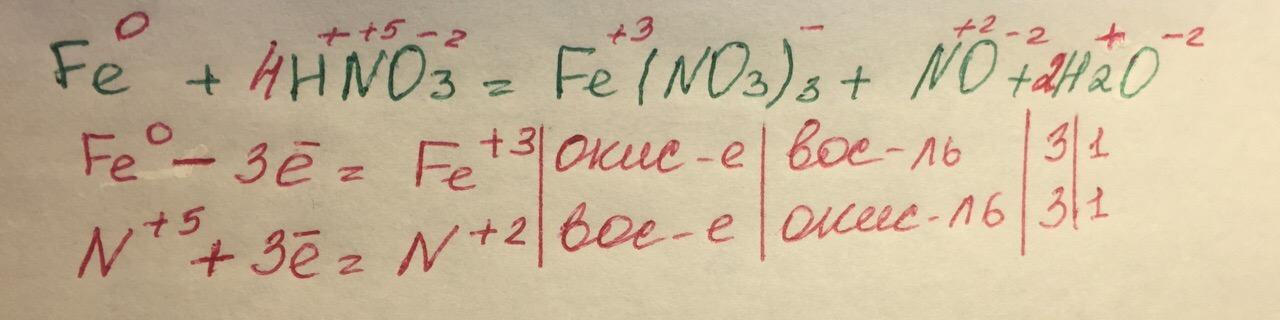 Fe⁰ + 4H⁺N⁺⁵O₃⁻² = Fe⁺³(NO₃)₃⁻ + N⁺²O⁻² + 2H₂⁺O⁻²
Fe⁰ - 3ē = Fe⁺³ | окис-е | вос-ль | 3 | 1
N⁺⁵ + 3ē = N⁺² | вос-е | окис-ль | 3 | 1